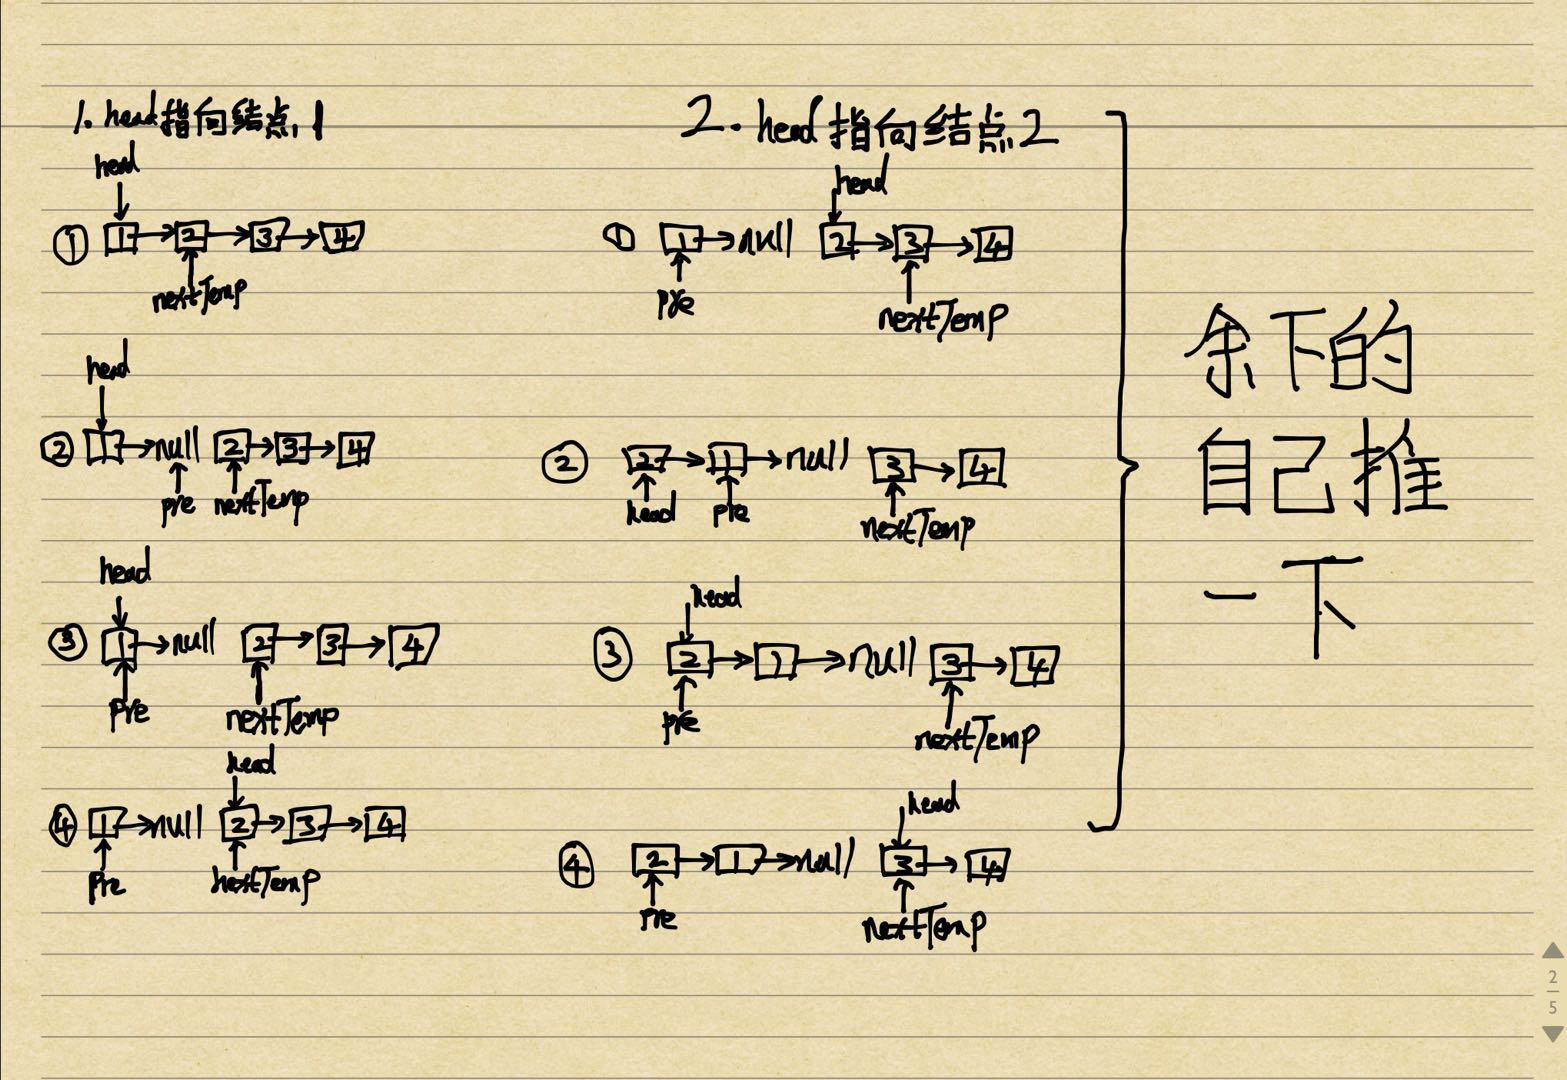 1. head指向结点1
head
① 1→2→3→4
nextTemp
head
② 1→null 2→3→4
pre nextTemp
head
③ 1→null 2→3→4
pre nextTemp
head
④ 1→null 2→3→4
pre nextTemp
2. head指向结点2
head
① 1→null 2→3→4
pre nextTemp
② 2→1→null 3→4
head pre nextTemp
head
③ 2→1→null 3→4
pre nextTemp
head
④ 2→1→null 3→4
pre nextTemp
余下的
自己推
一下
2
5